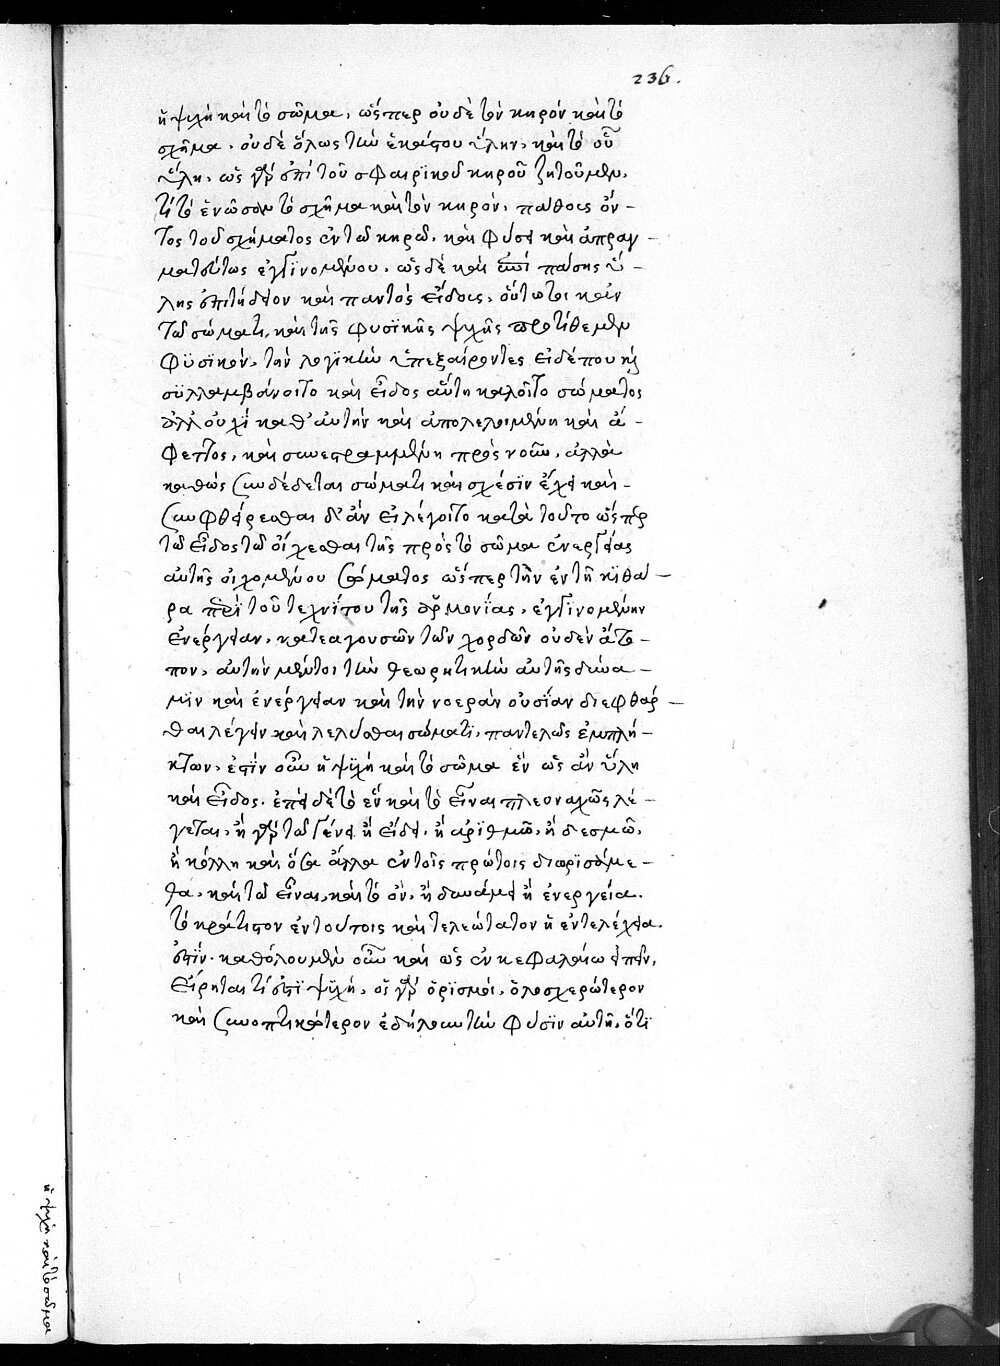 236.
ἡ ψυχὴ καὶ τὸ σῶμα, ὥσπερ οὐδὲ τὸν κηρὸν καὶ τὸ
σχῆμα. οὐδὲ ὅλως τὴν ἑκάστου ὕλην, καὶ τὸ οὗ
ὕλη. ὡς γὰρ ἐπὶ τοῦ σφαιρικοῦ κηροῦ ζητοῦμεν,
τί τὸ ἑνῶσον τὸ σχῆμα καὶ τὸν κηρόν, πάθους ὄν-
τος τοῦ σχήματος ἐν τῷ κηρῷ, καὶ φύσει καὶ ἀπραγ-
ματεύτως ἐγγινομένου, ὡς δὲ καὶ ἐπὶ πάσης ὕ-
λης ἐπιτήδειον καὶ παντὸς εἴδους, οὕτω τοι κἀν
τῷ σώματι, καὶ τῆς φυσικῆς ψυχῆς προτίθεμεν
φυσικὸν, τὴν λογικὴν ὑπεξαίροντες εἰ δέ που κἢ
συλλαμβάνοιτο καὶ εἶδος αὕτη καλοῖτο σώματος
ἀλλ' οὐχὶ καθ' αὑτὴν καὶ ἀπολελειμένη καὶ ἄ-
φετος, καὶ συνεστραμμένη πρὸς νοῦν, ἀλλὰ
καθὼς συνδέδεται σώματι καὶ σχέσιν ἔχει καὶ-
συμφθείρεσθαι δ' ἂν εἰ λέγοιτο κατὰ τοῦτο ὥσπερ
τῷ εἶδος τῷ οἴχεσθαι τῆς πρὸς τὸ σῶμα ἐνεργείας
αὐτῆς οἰχομένου σώματος ὥσπερ τὴν ἐν τῇ κιθά-
ρα περὶ τοῦ τεχνίτου τῆς ἁρμονίας, ἐγγινομένην
ἐνέργειαν, κατεαγουσῶν τῶν χορδῶν οὐδὲν ἄτο-
πον, αὐτὴν μέντοι τὴν θεωρητικὴν αὐτῆς δύνα-
μιν καὶ ἐνέργειαν καὶ τὴν νοερὰν οὐσίαν διεφθάρ-
θαι λέγειν καὶ λελύσθαι σώματι, παντελῶς ἐμπλή-
κτων. ἐστὶν οὖν ἡ ψυχὴ καὶ τὸ σῶμα ἓν ὡς ἂν ὕλη
καὶ εἶδος. ἐπεὶ δὲ τὸ ἓν καὶ τὸ εἶναι πλεοναχῶς λέ-
γεται, ἢ γὰρ τῷ γένει ἢ εἴδει, ἢ ἀριθμῷ, ἢ δεσμῷ,
ἢ κόλλη καὶ ὅσα ἄλλα ἐν τοῖς πρώτοις διωρισάμε-
θα, καὶ τῷ εἶναι, καὶ τὸ ὂν, ἢ δυνάμει ἢ ἐνεργεία.
τὸ κράτιστον ἐν τούτοις καὶ τελεώτατον ἡ ἐντελέχεια
ἐστίν. καθόλου μὲν οὖν καὶ ὡς ἐν κεφαλαίω εἰπεῖν,
εἴρηται τί ἐστι ψυχή. οἱ γὰρ ὁρισμοὶ, ὁλοσχερώτερον
καὶ συνοπτικώτερον ἐδήλουν τὴν φύσιν αὐτῆ, ὅτι
ἡ ψυχὴ καὶ τὸ σῶμα